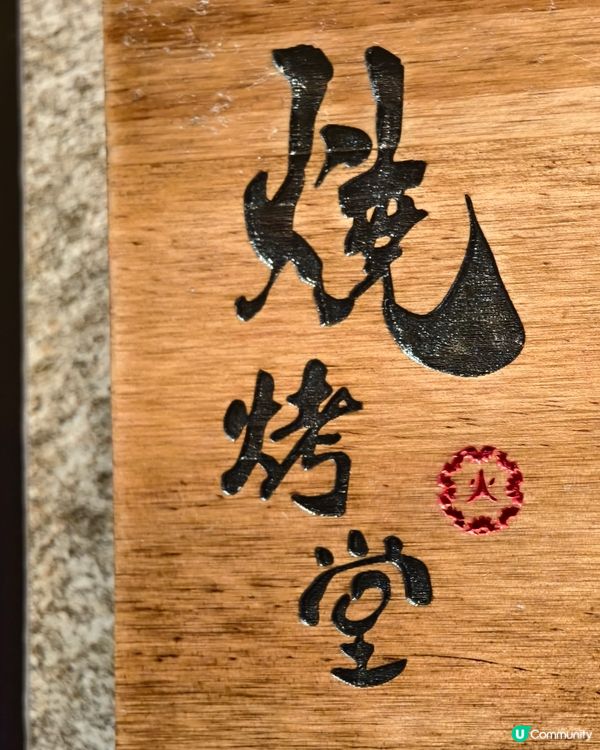 燒烤堂
火
U Community